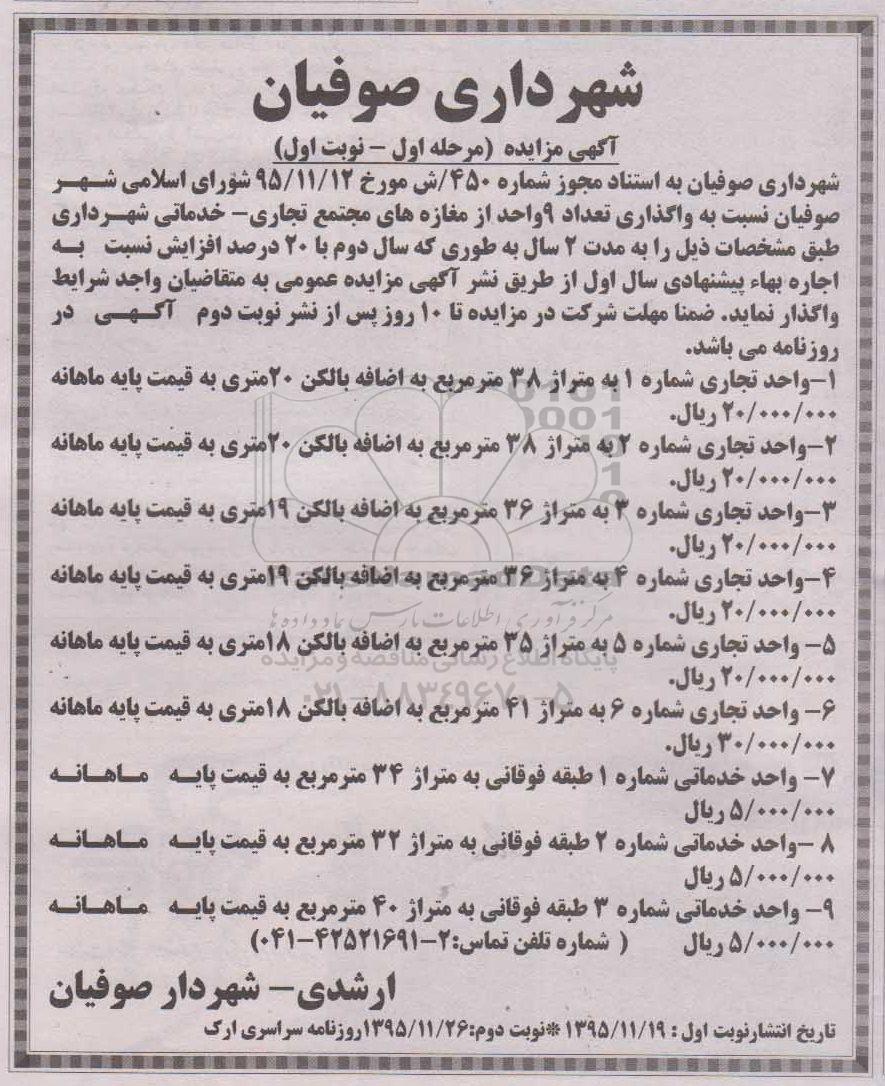 شهرداری صوفیان
آگهی مزایده (مرحله اول - نوبت اول)
شهرداری صوفیان به استناد مجوز شماره ۴۵۰/ش مورخ ۹۵/۱۱/۱۲ شورای اسلامی شهر
صوفیان نسبت به واگذاری تعداد ۹واحد از مغازه های مجتمع تجاری- خدماتی شهرداری
طبق مشخصات ذیل را به مدت ۲ سال به طوری که سال دوم با ۲۰ درصد افزایش نسبت به
اجاره بهاء پیشنهادی سال اول از طریق نشر آگهی مزایده عمومی به متقاضیان واجد شرایط
واگذار نماید. ضمنا مهلت شرکت در مزایده تا ۱۰ روز پس از نشر نوبت دوم آگهی در
روزنامه می باشد.
۱-واحد تجاری شماره ۱ به متراژ ۳۸ مترمربع به اضافه بالکن ۲۰متری به قیمت پایه ماهانه
۲۰/۰۰۰/۰۰۰ ریال.
۲-واحد تجاری شماره ۲ به متراژ ۳۸ مترمربع به اضافه بالکن ۲۰متری به قیمت پایه ماهانه
۲۰/۰۰۰/۰۰۰ ریال.
۳-واحد تجاری شماره ۳ به متراژ ۳۶ مترمربع به اضافه بالکن ۱۹متری به قیمت پایه ماهانه
۲۰/۰۰۰/۰۰۰ ریال.
۴-واحد تجاری شماره ۴ به متراژ ۳۶ مترمربع به اضافه بالکن ۱۹متری به قیمت پایه ماهانه
۲۰/۰۰۰/۰۰۰ ریال.
مرکز فرآوری اطلاعات پارس نماد داده ها
۵- واحد تجاری شماره ۵ به متراژ ۳۵ مترمربع به اضافه بالکن ۱۸متری به قیمت پایه ماهانه
پایگاه اطلاع رسانی مناقصه و مزایده
۲۰/۰۰۰/۰۰۰ ریال.
۰۲۱-۸۸۳۴۹۶۷۰-۵
۶- واحد تجاری شماره ۶ به متراژ ۴۱ مترمربع به اضافه بالکن ۱۸متری به قیمت پایه ماهانه
۳۰/۰۰۰/۰۰۰ ریال.
۷- واحد خدماتی شماره ۱ طبقه فوقانی به متراژ ۳۴ مترمربع به قیمت پایه ماهانه
۵/۰۰۰/۰۰۰ ریال
۸ -واحد خدماتی شماره ۲ طبقه فوقانی به متراژ ۳۲ مترمربع به قیمت پایه ماهانه
۵/۰۰۰/۰۰۰ ریال
۹- واحد خدماتی شماره ۳ طبقه فوقانی به متراژ ۴۰ مترمربع به قیمت پایه ماهانه
۵/۰۰۰/۰۰۰ ریال ( شماره تلفن تماس:۲-۴۲۵۲۱۶۹۱-۰۴۱)
ارشدی- شهردار صوفیان
تاریخ انتشارنوبت اول : ۱۳۹۵/۱۱/۱۹ *نوبت دوم:۱۳۹۵/۱۱/۲۶روزنامه سراسری ارک